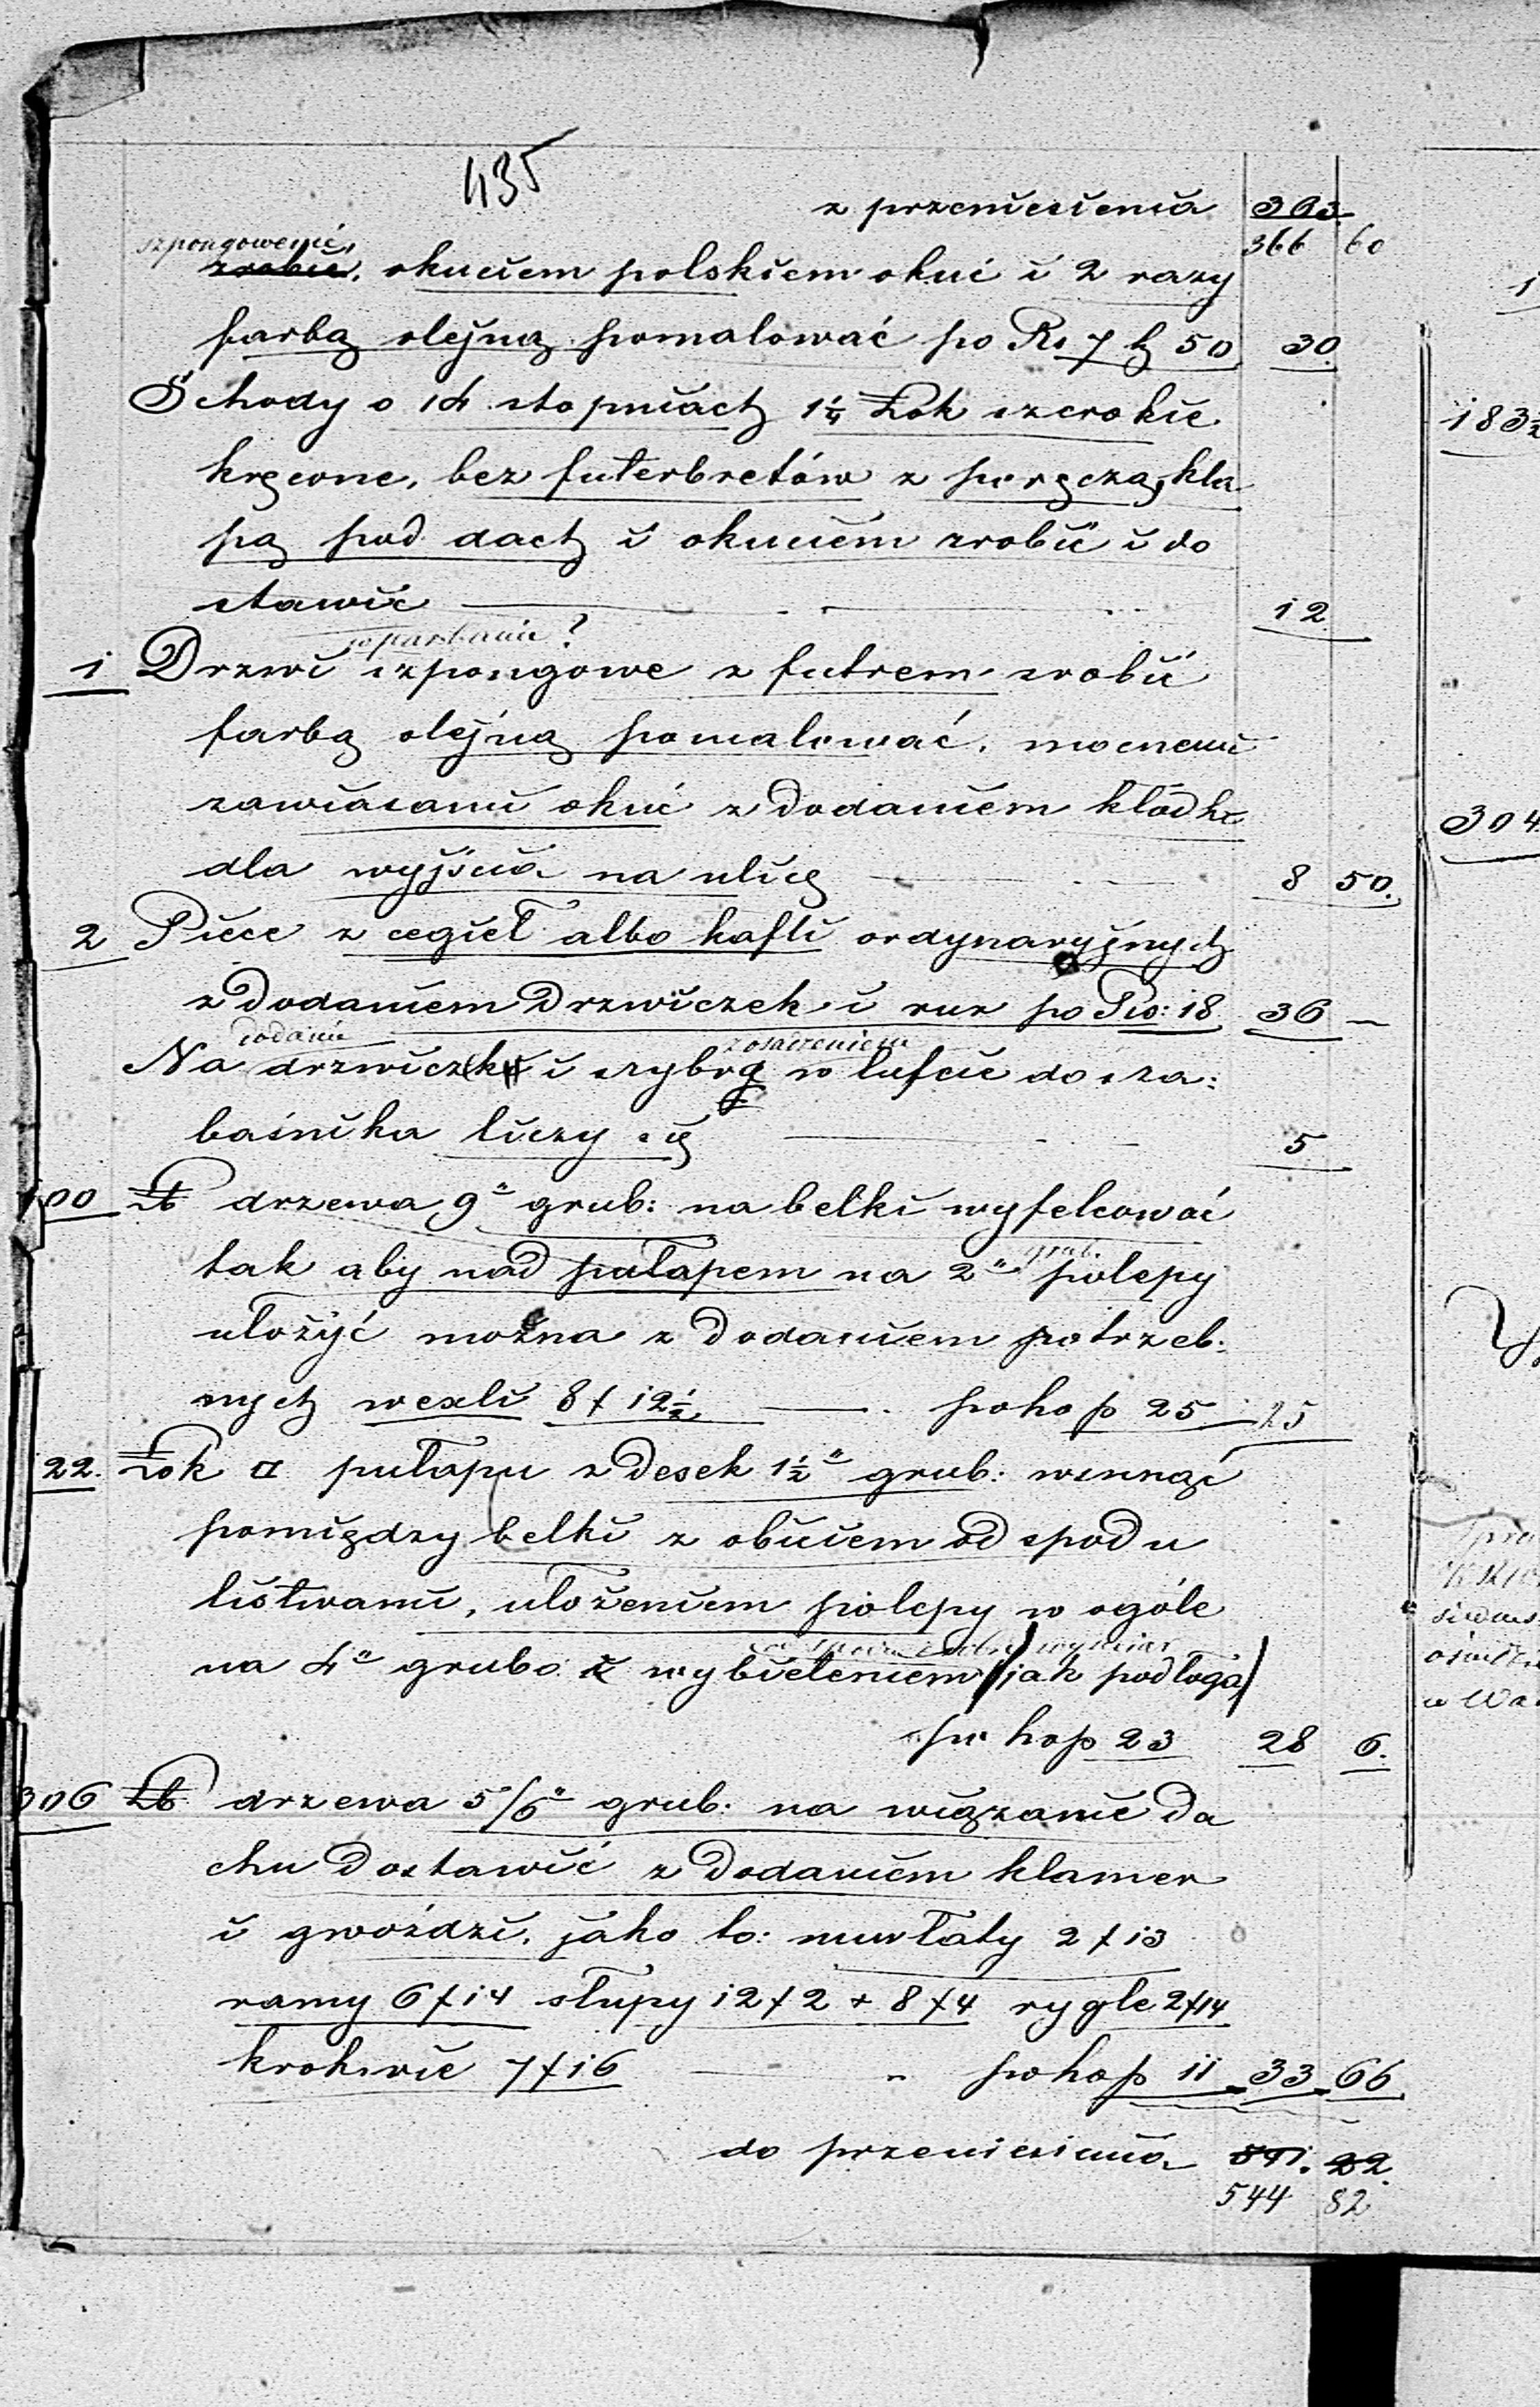 435
z przeniesienia 363
366 60
szpongowe
zrobić, okuciem polskiem okuć i 2 razy
farbą olejną pomalować po Rs 7 k 50 30
Schody o 14 stopniach 1¼ Łok szerokie
kręcone, bez futerbretów z poręczą, kla
pą pod dach i okuciem zrobić i do
stawić 12
?
1 Drzwi szpongowe z futrem zrobić
farbą olejną pomalować, mocnemi
zawiasami okuć z dodaniem kłódki
dla wyjścia na ulicę 8 50.
2 Piece z cegieł albo kafli ordynaryjnych
z dodaniem Drzwiczek i rur po Rs: 18 36 —
dodanie z osadzeniem
Na drzwiczki i szybrę w lufcie do sza:
baśnika liczy się 5
100 Łb drzewa 9" grub: na belki wyfelcować
grub.
tak aby nad pułapem na 2" polepy
ułożyć można z dodaniem potrzeb:
nych wexli 8 x 12½ po kop 25 25
122. Łok □ pułapu z desek 1½" grub: wsunąć
pomiędzy belki z obiciem od spodu
listwami, ułożeniem polepy w ogóle
wymiar
na 4" grubo i wybieleniem (jak podłoga)
po kop 23 28 6.
306 Łb drzewa 5/6" grub: na wiązanie Da
chu Dostawić z Dodaniem klamer
i gwoździ, jako to: murłaty 2 x 13
ramy 6 x 14 słupy 12 x 2 + 8 x 4 rygle 2 x 14
krokwie 7 x 16 po kop 11 33 66
do przeniesienia 541. 22.
544 82
1
183½
304